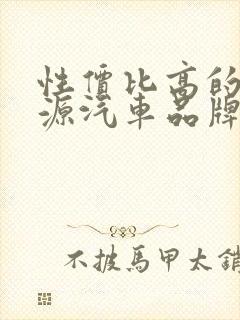 性價比高的
源汽車品牌
不披馬甲太銷